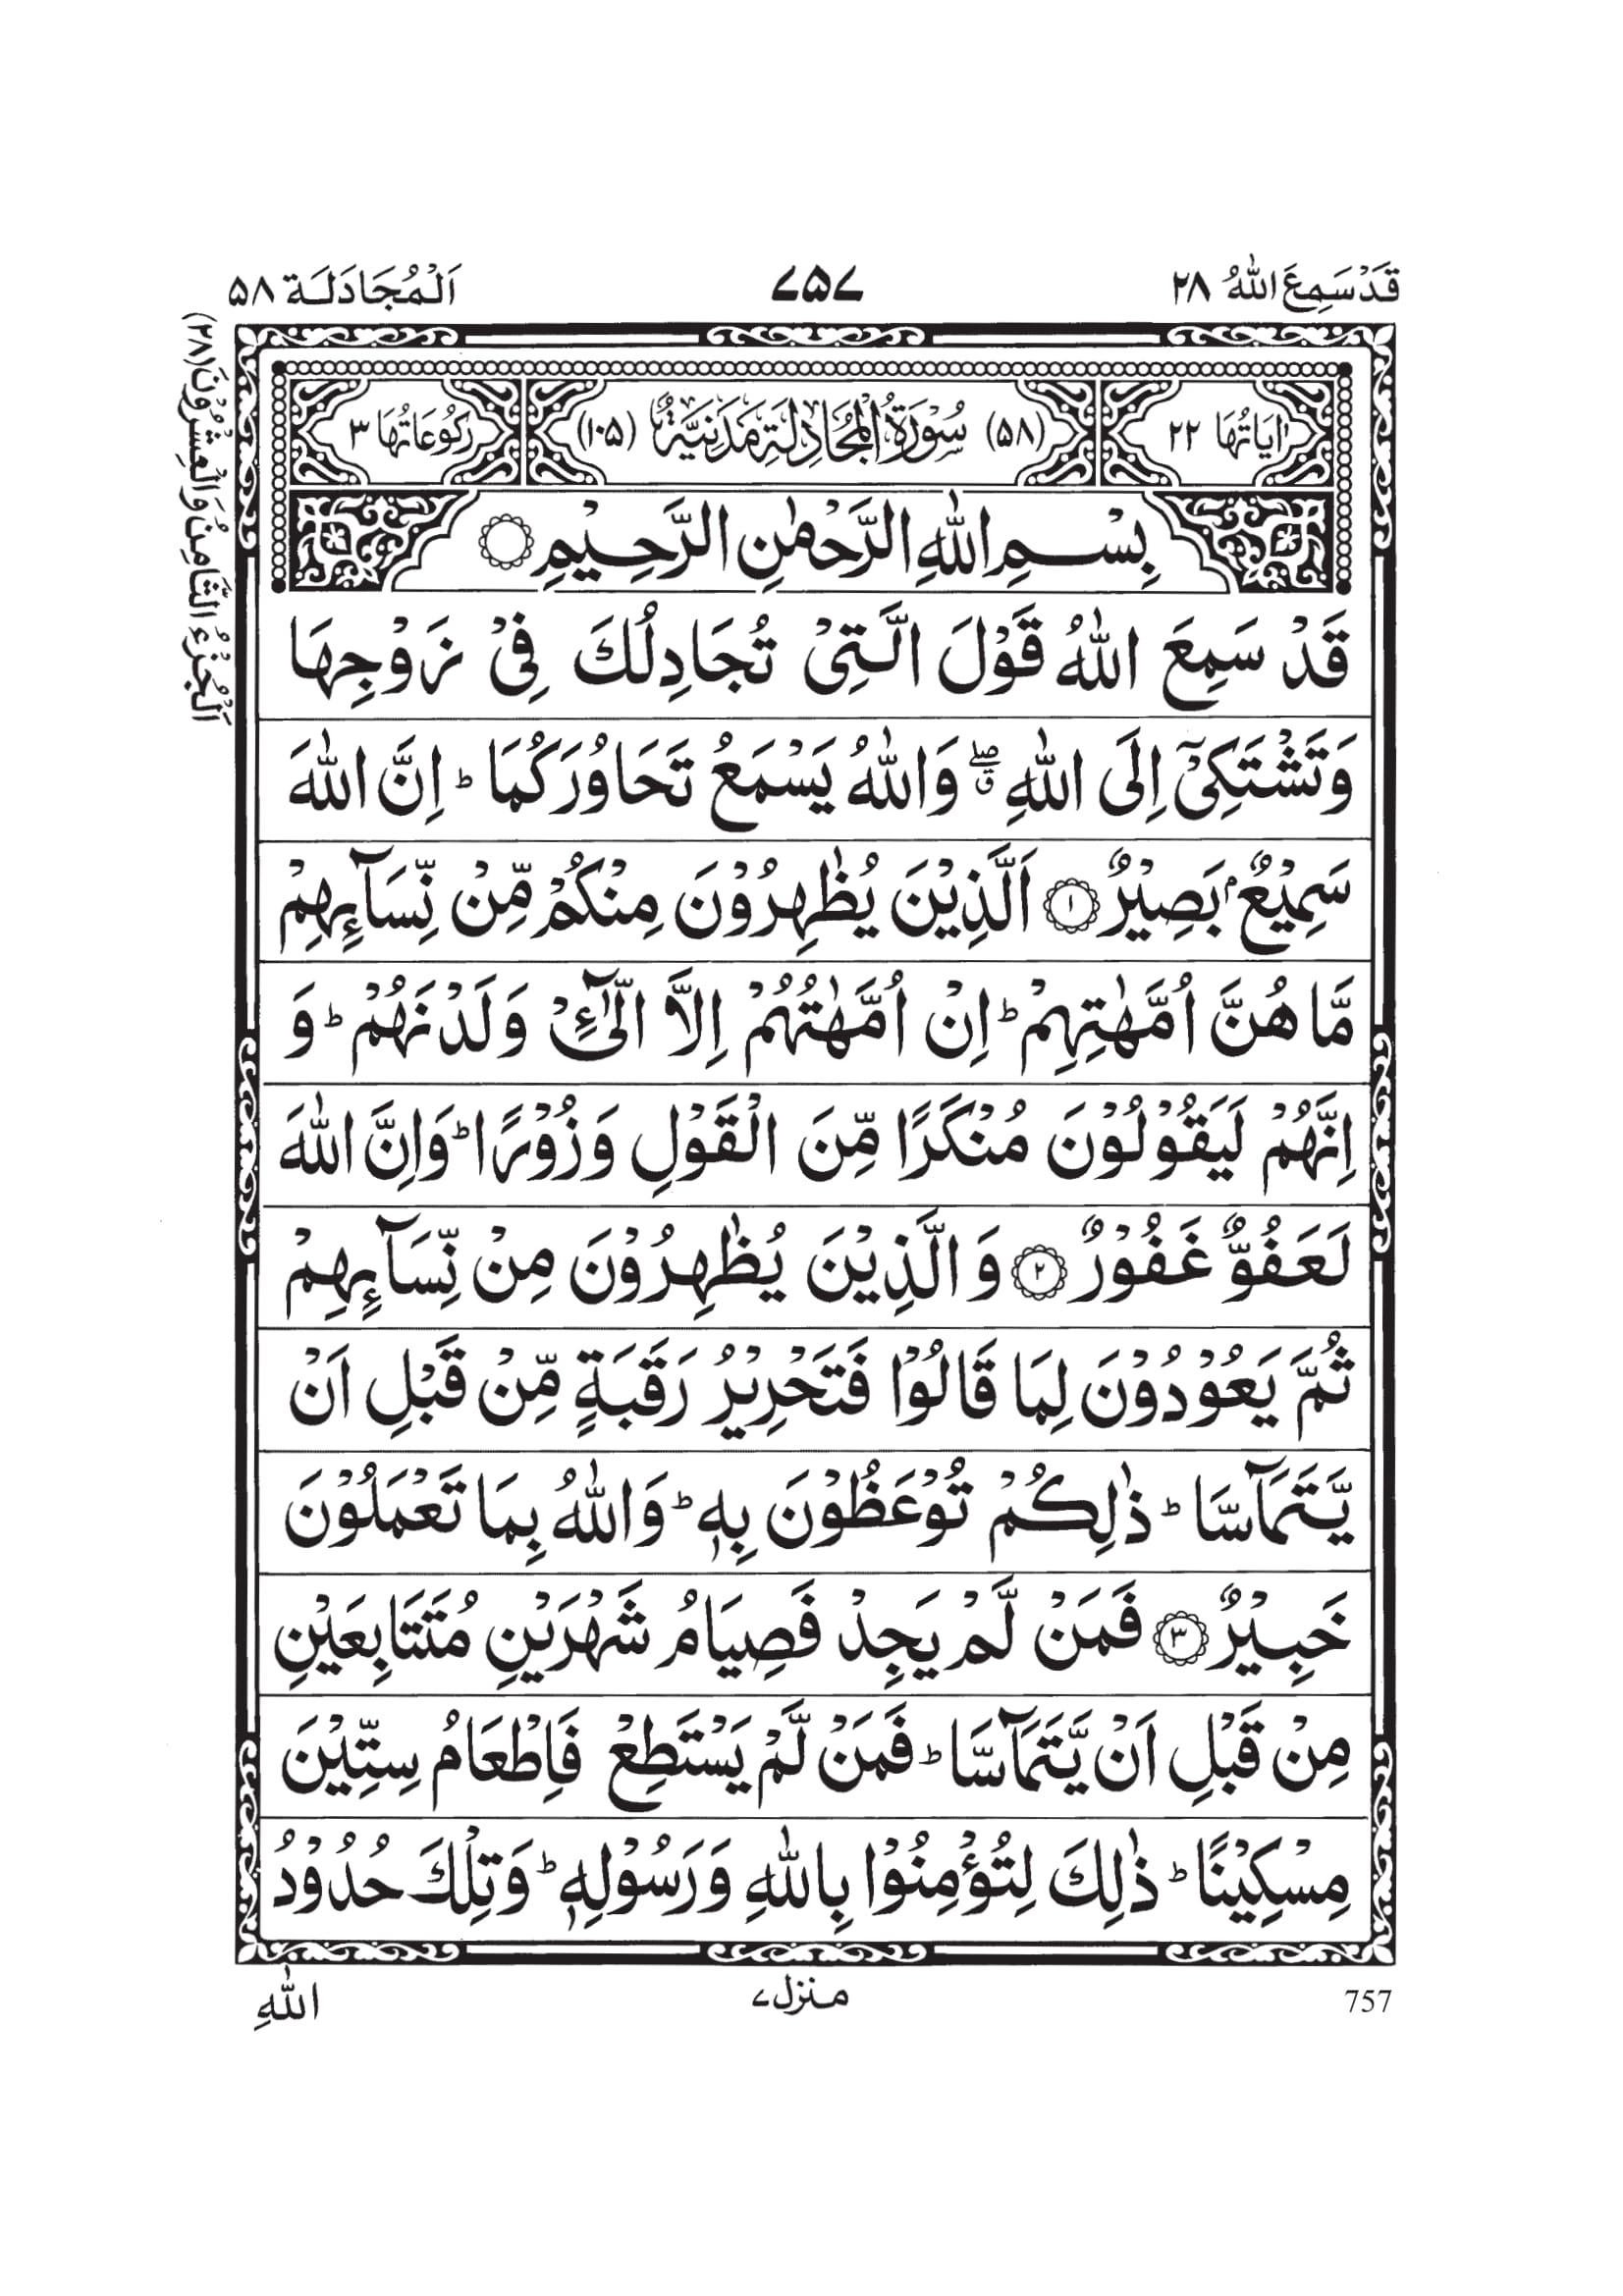 قَدْ سَمِعَ اللّٰهُ ٢٨
٧٥٧
اَلْمُجَادَلَة ٥٨
اَلْجُزْءُ الثَّامِنُ وَالْعِشْرُوْنَ (٢٨)
اٰيَاتُهَا ٢٢
(٥٨) سُوْرَةُ الْمُجَادِلَةِ مَدَنِيَّةٌ (١٠٥)
رُكُوْعَاتُهَا ٣
بِسْمِ اللّٰهِ الرَّحْمٰنِ الرَّحِيْمِ
قَدْ سَمِعَ اللّٰهُ قَوْلَ الَّتِىْ تُجَادِلُكَ فِىْ زَوْجِهَا
وَتَشْتَكِىْٓ اِلَى اللّٰهِ ۖۗ وَاللّٰهُ يَسْمَعُ تَحَاوُرَكُمَا ؕ اِنَّ اللّٰهَ
سَمِيْعٌۢ بَصِيْرٌ ۝١ اَلَّذِيْنَ يُظٰهِرُوْنَ مِنْكُمْ مِّنْ نِّسَآئِهِمْ
مَّا هُنَّ اُمَّهٰتِهِمْ ؕ اِنْ اُمَّهٰتُهُمْ اِلَّا الّٰٓئِْ وَلَدْنَهُمْ ؕ وَ
اِنَّهُمْ لَيَقُوْلُوْنَ مُنْكَرًا مِّنَ الْقَوْلِ وَزُوْرًا ؕ وَاِنَّ اللّٰهَ
لَعَفُوٌّ غَفُوْرٌ ۝٢ وَالَّذِيْنَ يُظٰهِرُوْنَ مِنْ نِّسَآئِهِمْ
ثُمَّ يَعُوْدُوْنَ لِمَا قَالُوْا فَتَحْرِيْرُ رَقَبَةٍ مِّنْ قَبْلِ اَنْ
يَّتَمَآسَّا ؕ ذٰلِكُمْ تُوْعَظُوْنَ بِهٖ ؕ وَاللّٰهُ بِمَا تَعْمَلُوْنَ
خَبِيْرٌ ۝٣ فَمَنْ لَّمْ يَجِدْ فَصِيَامُ شَهْرَيْنِ مُتَتَابِعَيْنِ
مِنْ قَبْلِ اَنْ يَّتَمَآسَّا ؕ فَمَنْ لَّمْ يَسْتَطِعْ فَاِطْعَامُ سِتِّيْنَ
مِسْكِيْنًا ؕ ذٰلِكَ لِتُؤْمِنُوْا بِاللّٰهِ وَرَسُوْلِهٖ ؕ وَتِلْكَ حُدُوْدُ
757
منزل ٧
اللّٰهِ